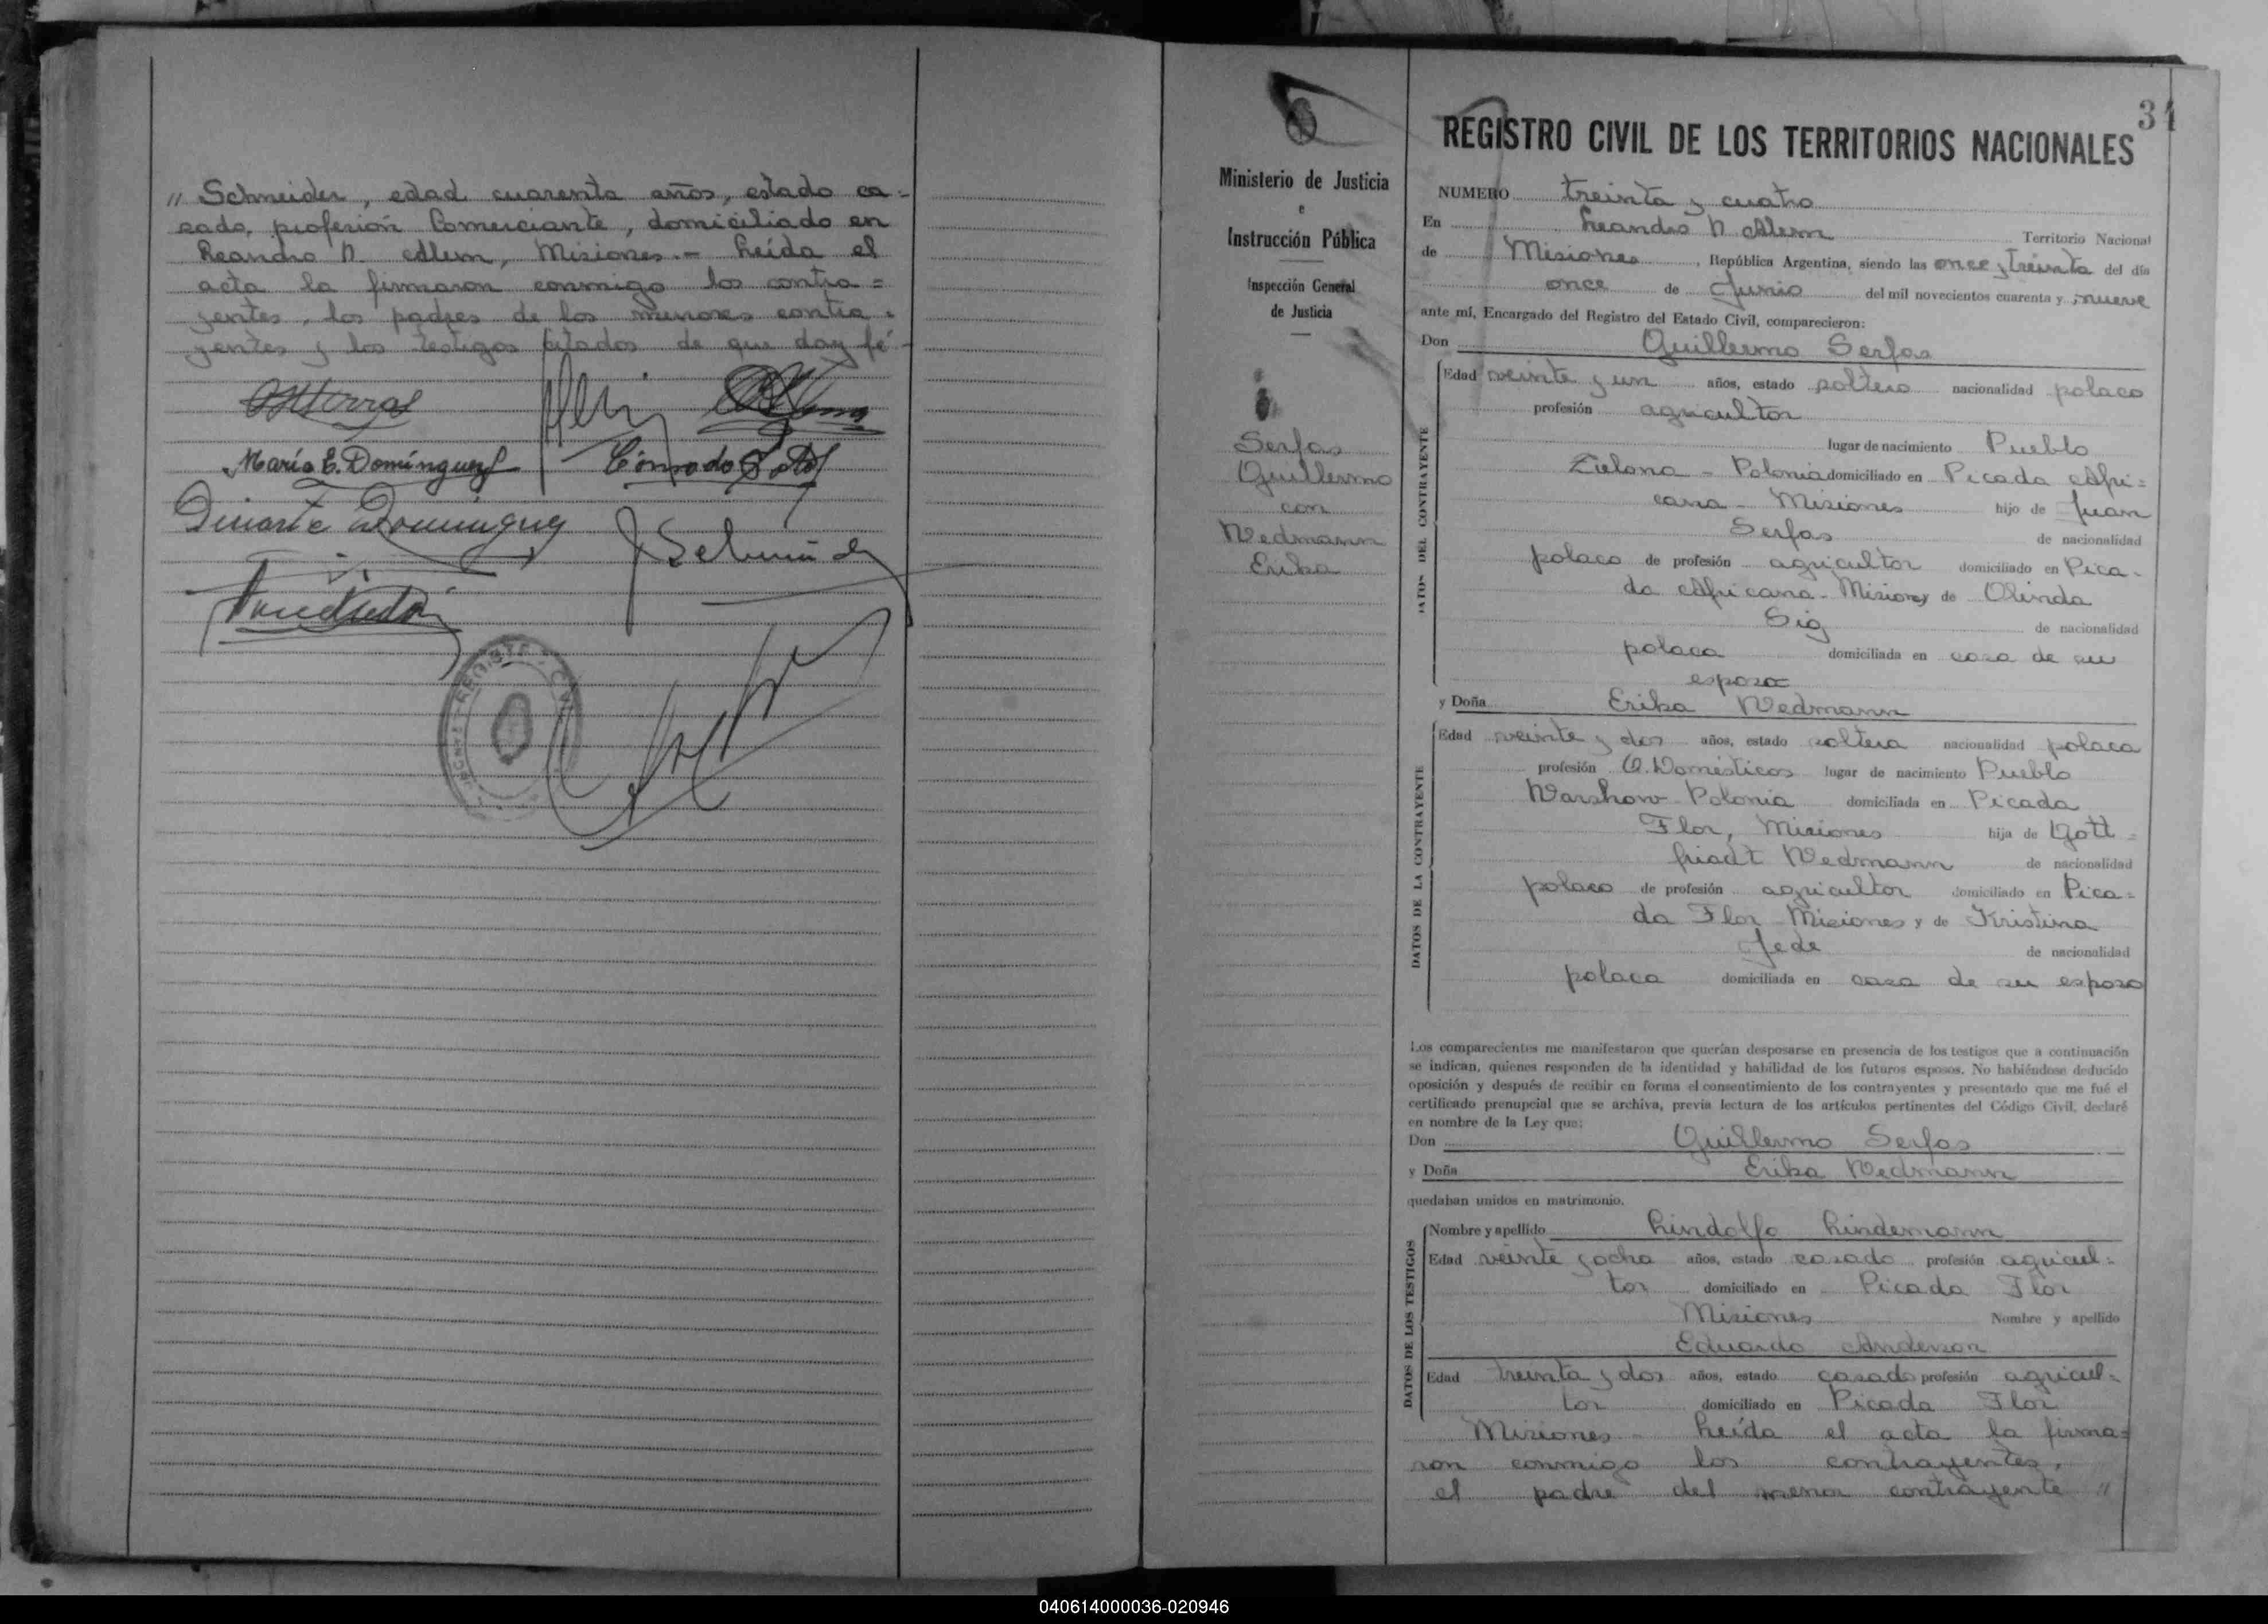 " Schneider, edad cuarenta años, estado ca=
sado, profesión Comerciante, domiciliado en
Leandro N. Alem, Misiones.- Leída el
acta la firmaron conmigo los contra=
yentes, los padres de los menores contra=
yentes y los testigos citados de que doy fé-
María E. Domínguez
Conrado
Duarte Dominguez
REGISTRO CIVIL
34
Ministerio de Justicia
e
Instrucción Pública
Inspección General
de Justicia
Serfas
Guillermo
con
Wedmann
Erika
REGISTRO CIVIL DE LOS TERRITORIOS NACIONALES
NUMERO treinta y cuatro
En Leandro N Alem Territorio Nacional
de Misiones, República Argentina, siendo las once y treinta del día
once de Junio del mil novecientos cuarenta y nueve
ante mí, Encargado del Registro del Estado Civil, comparecieron:
Don Guillermo Serfas
DATOS DEL CONTRAYENTE
Edad veinte y un años, estado soltero nacionalidad polaco
profesión agricultor
lugar de nacimiento Pueblo
Zielona - Polonia domiciliado en Picada Afri=
cana - Misiones hijo de Juan
Serfas de nacionalidad
polaco de profesión agricultor domiciliado en Pica-
da Africana - Misiones de Olinda
Sig de nacionalidad
polaca domiciliada en casa de su
esposo
y Doña Erika Wedmann
DATOS DE LA CONTRAYENTE
Edad veinte y dos años, estado soltera nacionalidad polaca
profesión Q. Domésticos lugar de nacimiento Pueblo
Warshow - Polonia domiciliada en Picada
Flor, Misiones hija de Gott=
friadt Wedmann de nacionalidad
polaco de profesión agricultor domiciliado en Pica=
da Flor - Misiones y de Kristina
Jede de nacionalidad
polaca domiciliada en casa de su esposo
Los comparecientes me manifestaron que querían desposarse en presencia de los testigos que a continuación
se indican, quienes responden de la identidad y habilidad de los futuros esposos. No habiéndose deducido
oposición y después de recibir en forma el consentimiento de los contrayentes y presentado que me fué el
certificado prenupcial que se archiva, previa lectura de los artículos pertinentes del Código Civil, declaré
en nombre de la Ley que:
Don Guillermo Serfas
y Doña Erika Wedmann
quedaban unidos en matrimonio.
DATOS DE LOS TESTIGOS
Nombre y apellido Lindolfo Lindemann
Edad veinte y ocho años, estado casado profesión agricul=
tor domiciliado en Picada Flor
Misiones Nombre y apellido
Eduardo Anderson
Edad treinta y dos años, estado casado profesión agricul=
tor domiciliado en Picada Flor
Misiones - Leída el acta la firma=
ron conmigo los contrayentes,
el padre del menor contrayente "
040614000036-020946